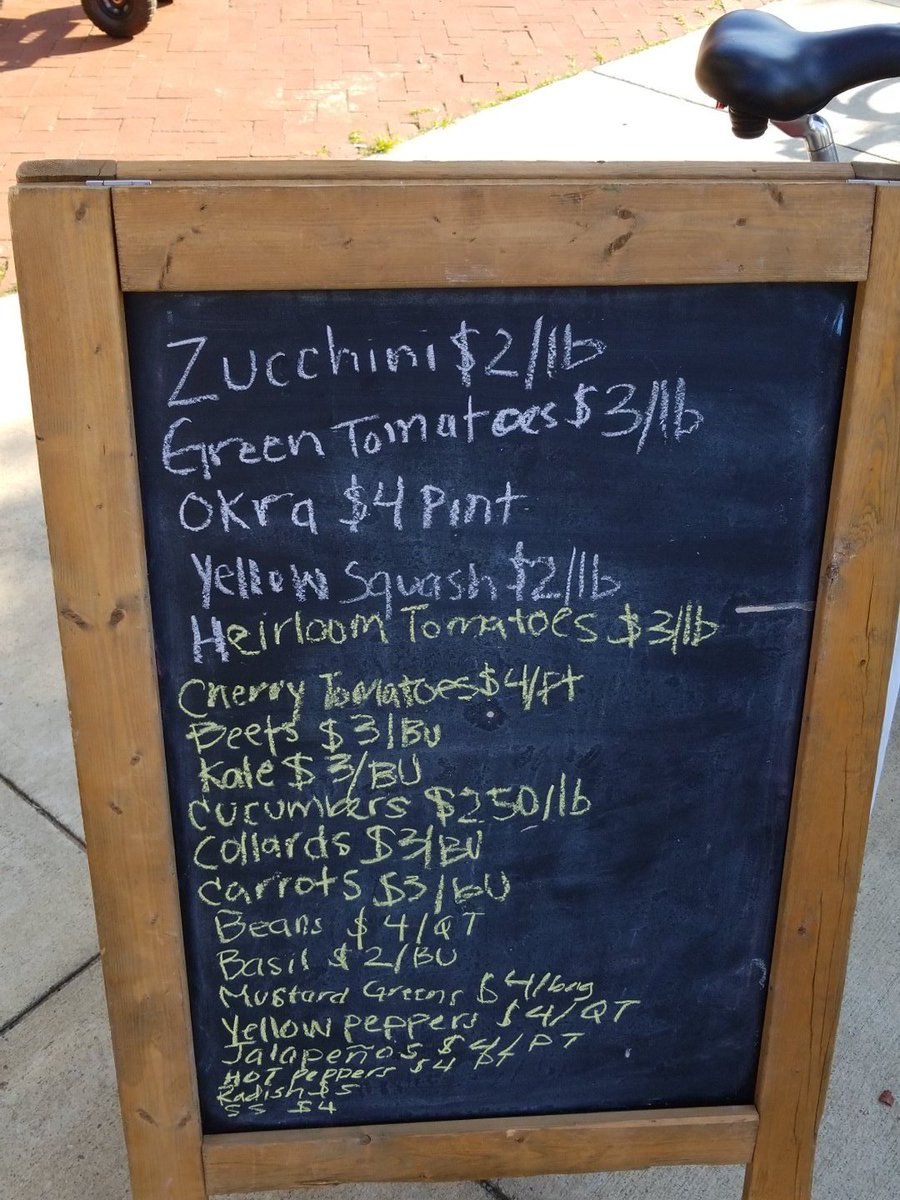 Zucchini $2/lb
Green Tomatoes $3/lb
Okra $4 Pint
Yellow Squash $2/lb
Heirloom Tomatoes $3/lb
Cherry Tomatoes $4/Pt
Beets $3/BU
Kale $3/BU
Cucumbers $250/lb
Collards $3/BU
Carrots $3/BU
Beans $4/QT
Basil $2/BU
Mustard Greens $4/bag
Yellow peppers $4/QT
Jalapeños $4/PT
HOT Peppers $4 Pt
Radish $5
SS $4